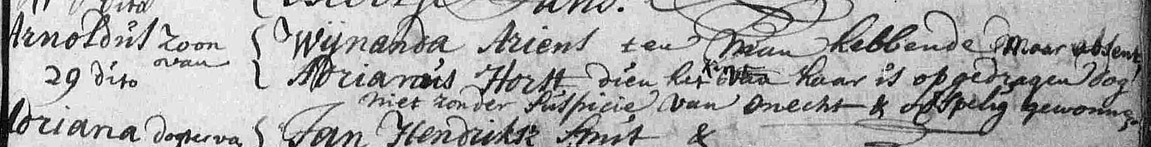 Arnoldus zoon van { Wijnanda Ariens ten man hebbende maar absent
29 dito { Adrianus Horst dien het van haar is opgedragen dog
niet zonder suspicie van onecht & overspelig gewonnen
Adriana dogter van { Jan Hendrikse Smit &